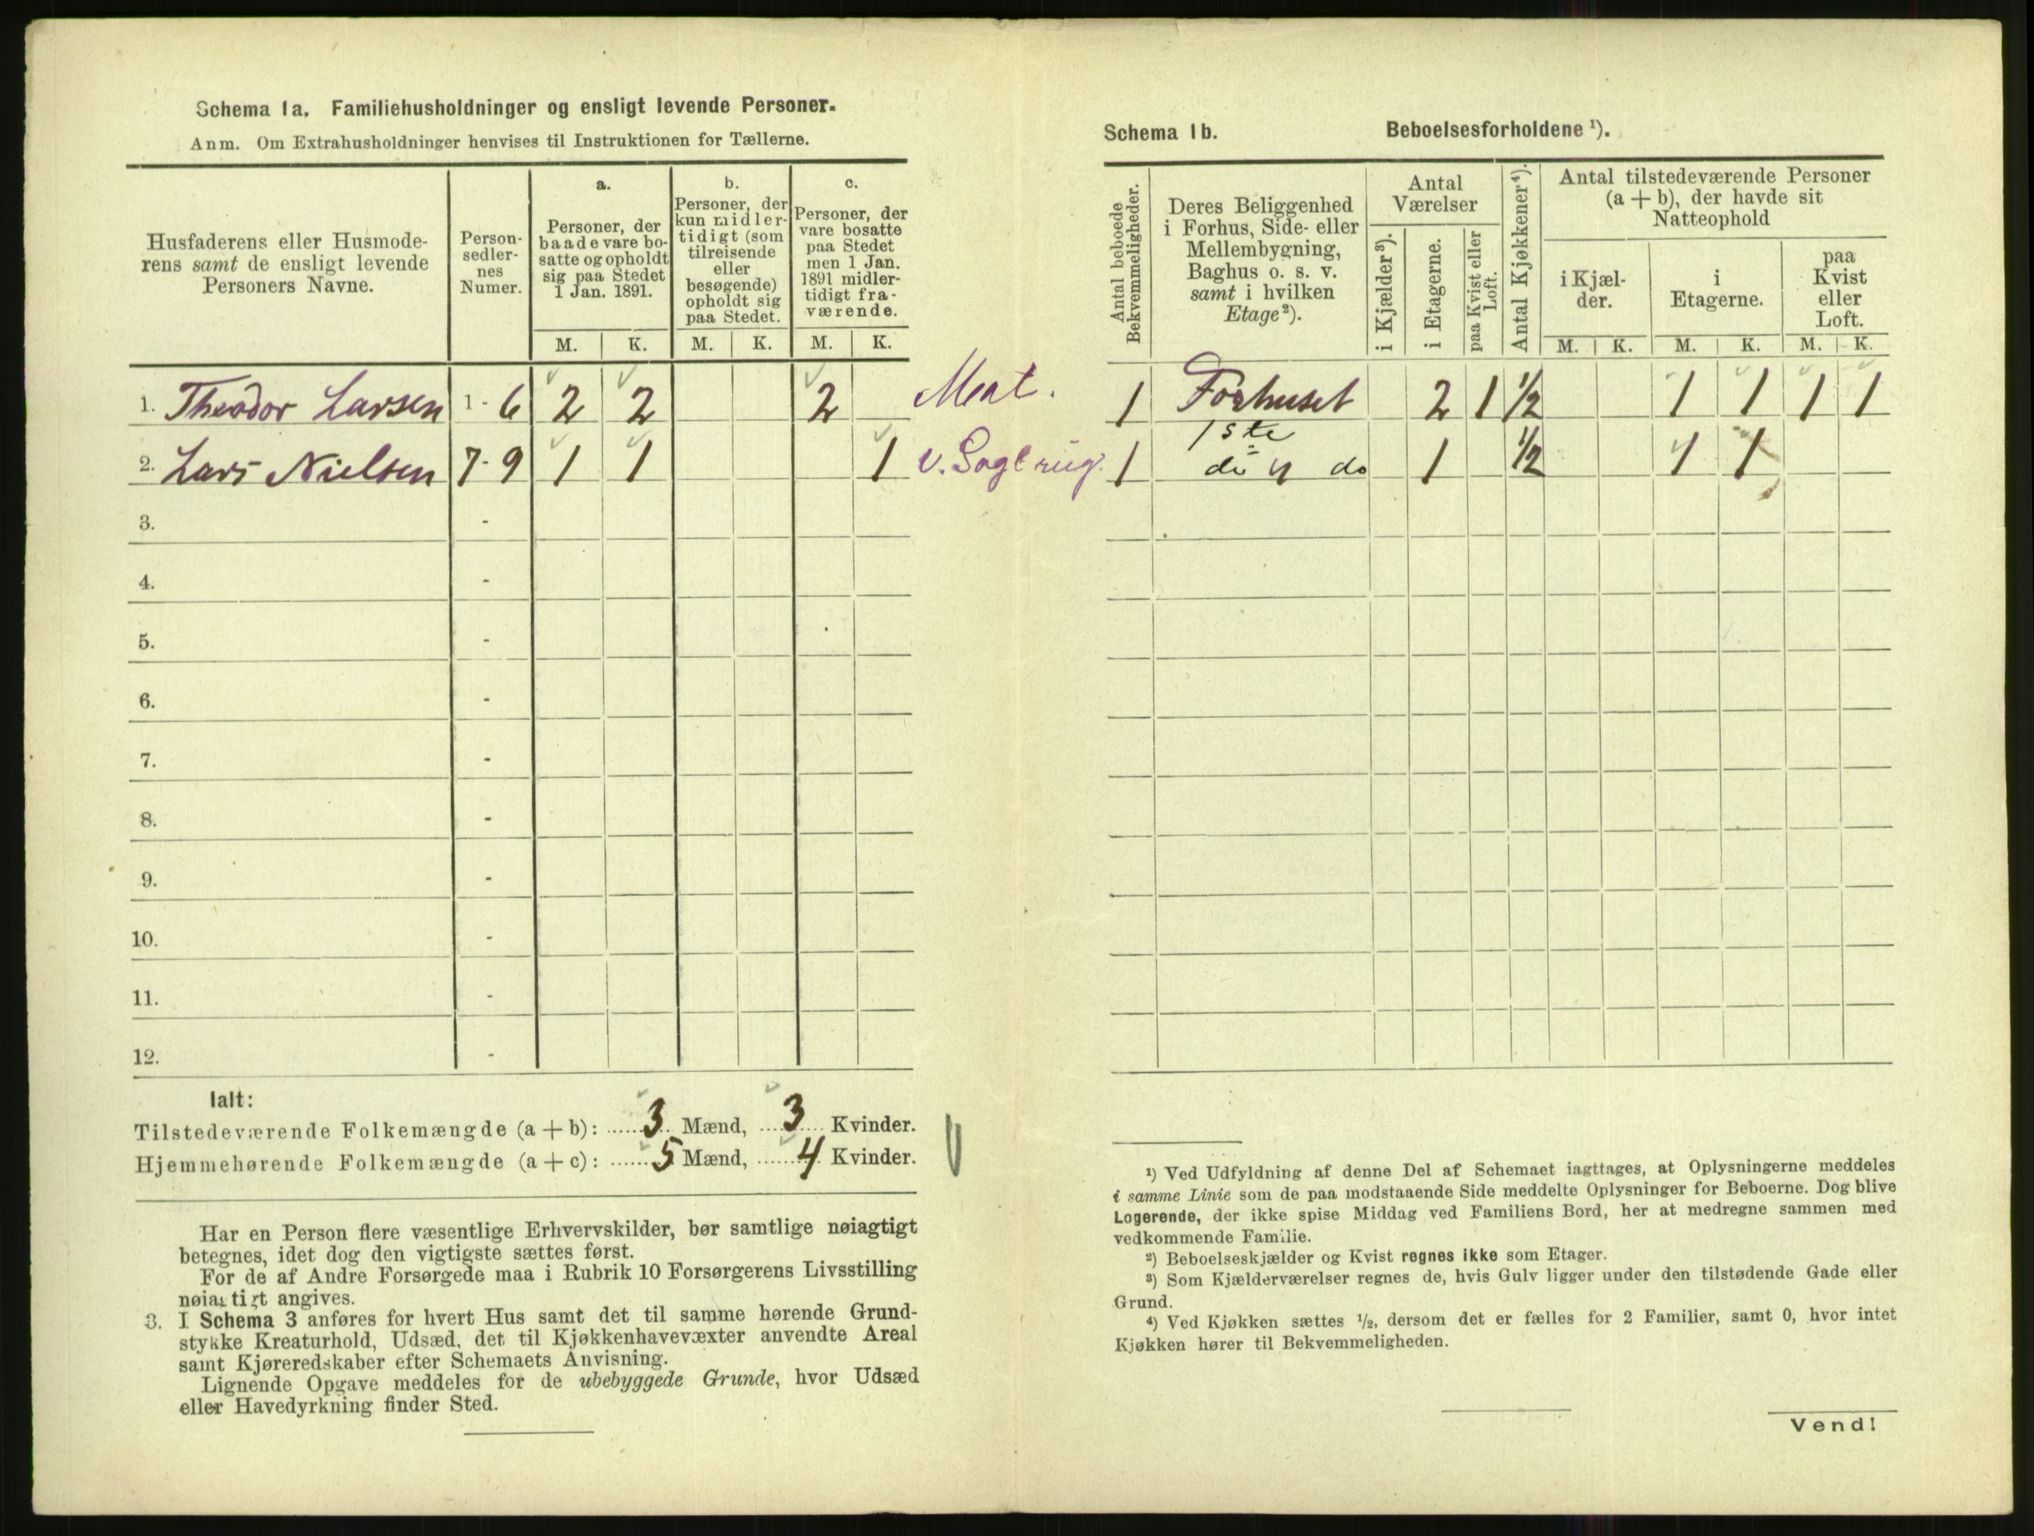 Schema 1a. Familiehusholdninger og ensligt levende Personer.
Anm. Om Extrahusholdninger henvises til Instruktionen for Tællerne.
Husfaderens eller Husmode-
rens samt de ensligt levende
Personers Navne.
Person-
sedler-
nes
Numer.
a.
Personer, der
baade vare bo-
satte og opholdt
sig paa Stedet
1 Jan. 1891.
b.
Personer, der
kun midler-
tidigt (som
tilreisende
eller
besøgende)
opholdt sig
paa Stedet.
c.
Personer, der
vare bosatte
paa Stedet
men 1 Jan.
1891 midler-
tidigt fra-
værende.
M. K. M. K. M. K.
1. Theodor Larsen 1 - 6 2 2 2
2. Lars Nielsen 7 - 9 1 1 1
3. -
4. -
5. -
6. -
7. -
8. -
9. -
10. -
11. -
12. -
Ialt:
Tilstedeværende Folkemængde (a + b): 3 Mænd, 3 Kvinder.
Hjemmehørende Folkemængde (a + c): 5 Mænd, 4 Kvinder.
Har en Person flere væsentlige Erhvervskilder, bør samtlige nøiagtigt
betegnes, idet dog den vigtigste sættes først.
For de af Andre Forsørgede maa i Rubrik 10 Forsørgerens Livsstilling
nøiagtigt angives.
3. I Schema 3 anføres for hvert Hus samt det til samme hørende Grund-
stykke Kreaturhold, Udsæd, det til Kjøkkenhavevæxter anvendte Areal
samt Kjøreredskaber efter Schemaets Anvisning.
Lignende Opgave meddeles for de ubebyggede Grunde, hvor Udsæd
eller Havedyrkning finder Sted.
Schema 1b. Beboelsesforholdene ¹).
Antal beboede
Bekvemmeligheder.
Deres Beliggenhed
i Forhus, Side- eller
Mellembygning,
Baghus o. s. v.
samt i hvilken
Etage²).
Antal
Værelser
i Kjælder³).
i Etagerne.
paa Kvist eller
Loft.
Antal Kjøkkener⁴).
Antal tilstedeværende Personer
(a + b), der havde sit
Natteophold
i Kjæl-
der.
i
Etagerne.
paa
Kvist
eller
Loft.
M. K. M. K. M. K.
1 Forhuset 2 1 ½ 1 1 1 1
1ste
1 do 1 ½ 1 1
¹) Ved Udfyldning af denne Del af Schemaet iagttages, at Oplysningerne meddeles
i samme Linie som de paa modstaaende Side meddelte Oplysninger for Beboerne. Dog blive
Logerende, der ikke spise Middag ved Familiens Bord, her at medregne sammen med
vedkommende Familie.
²) Beboelseskjælder og Kvist regnes ikke som Etager.
³) Som Kjælderværelser regnes de, hvis Gulv ligger under den tilstødende Gade eller
Grund.
⁴) Ved Kjøkken sættes ½, dersom det er fælles for 2 Familier, samt 0, hvor intet
Kjøkken hører til Bekvemmeligheden.
Vend!